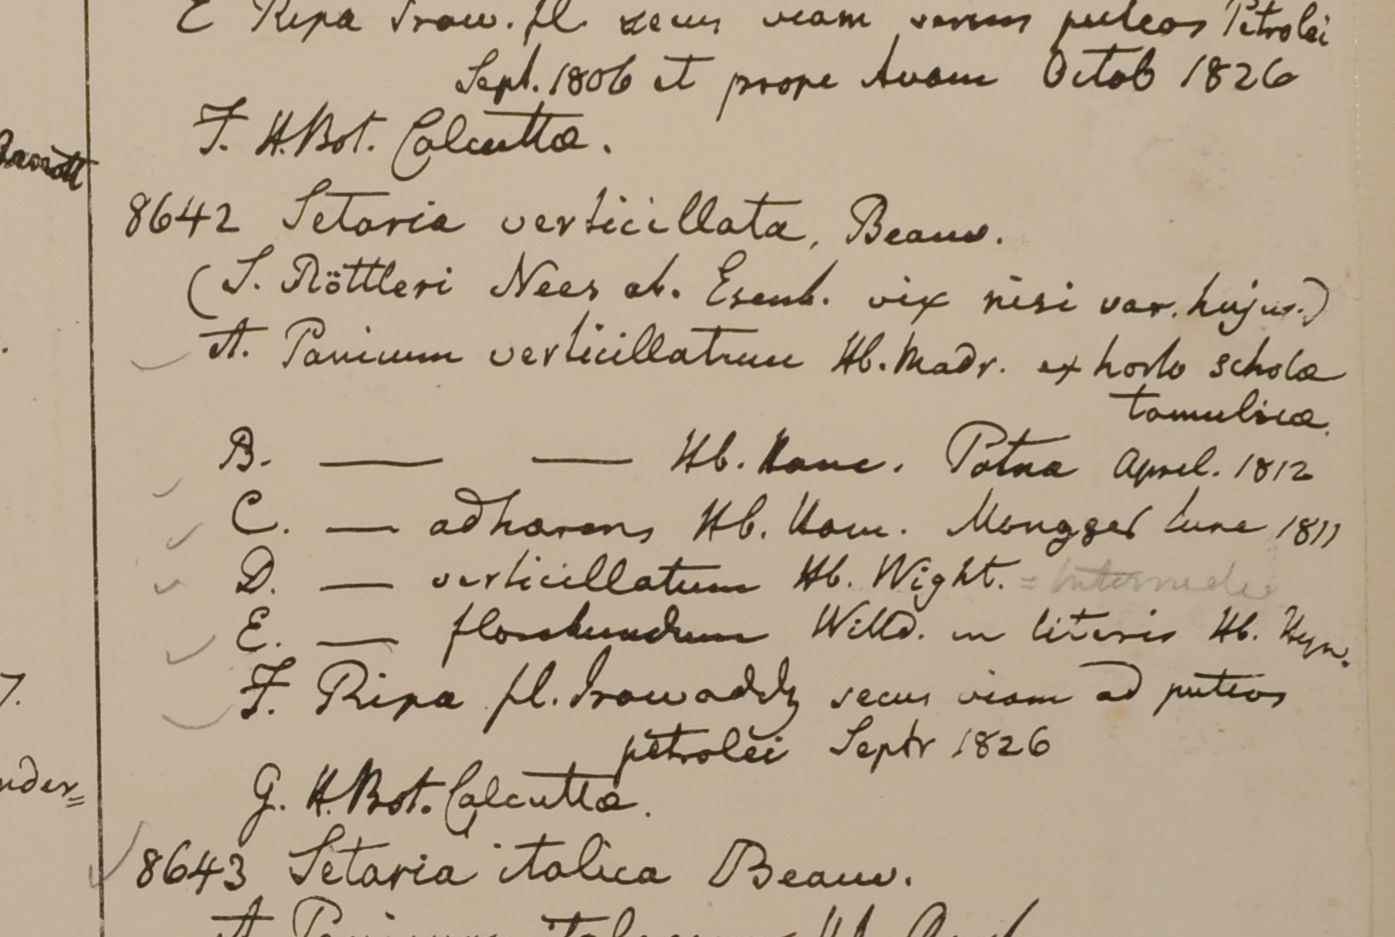 E Ripa Iraw. fl. secus viam versus puteos Petrolei
Sept. 1806 et prope Avam Octob 1826
F. H. Bot. Calcuttæ.
8642 Setaria verticillata, Beauv.
(S. Röttleri Nees ab. Esenb. vix nisi var. hujus.)
A. Panicum verticillatum Hb. Madr. ex horto scholæ
tamulicæ.
B. — — Hb. Ham. Patna April. 1812
C. — adhærens Hb. Ham. Mongger June 1811
D. — verticillatum Hb. Wight. = Intermedia
E. — floribundum Willd. in literis Hb. Heyn.
F. Ripa fl. Irawaddy secus viam ad puteos
petrolei Septr 1826
G. H. Bot. Calcuttæ.
8643 Setaria italica Beauv.
A Panicum italicum Hb.